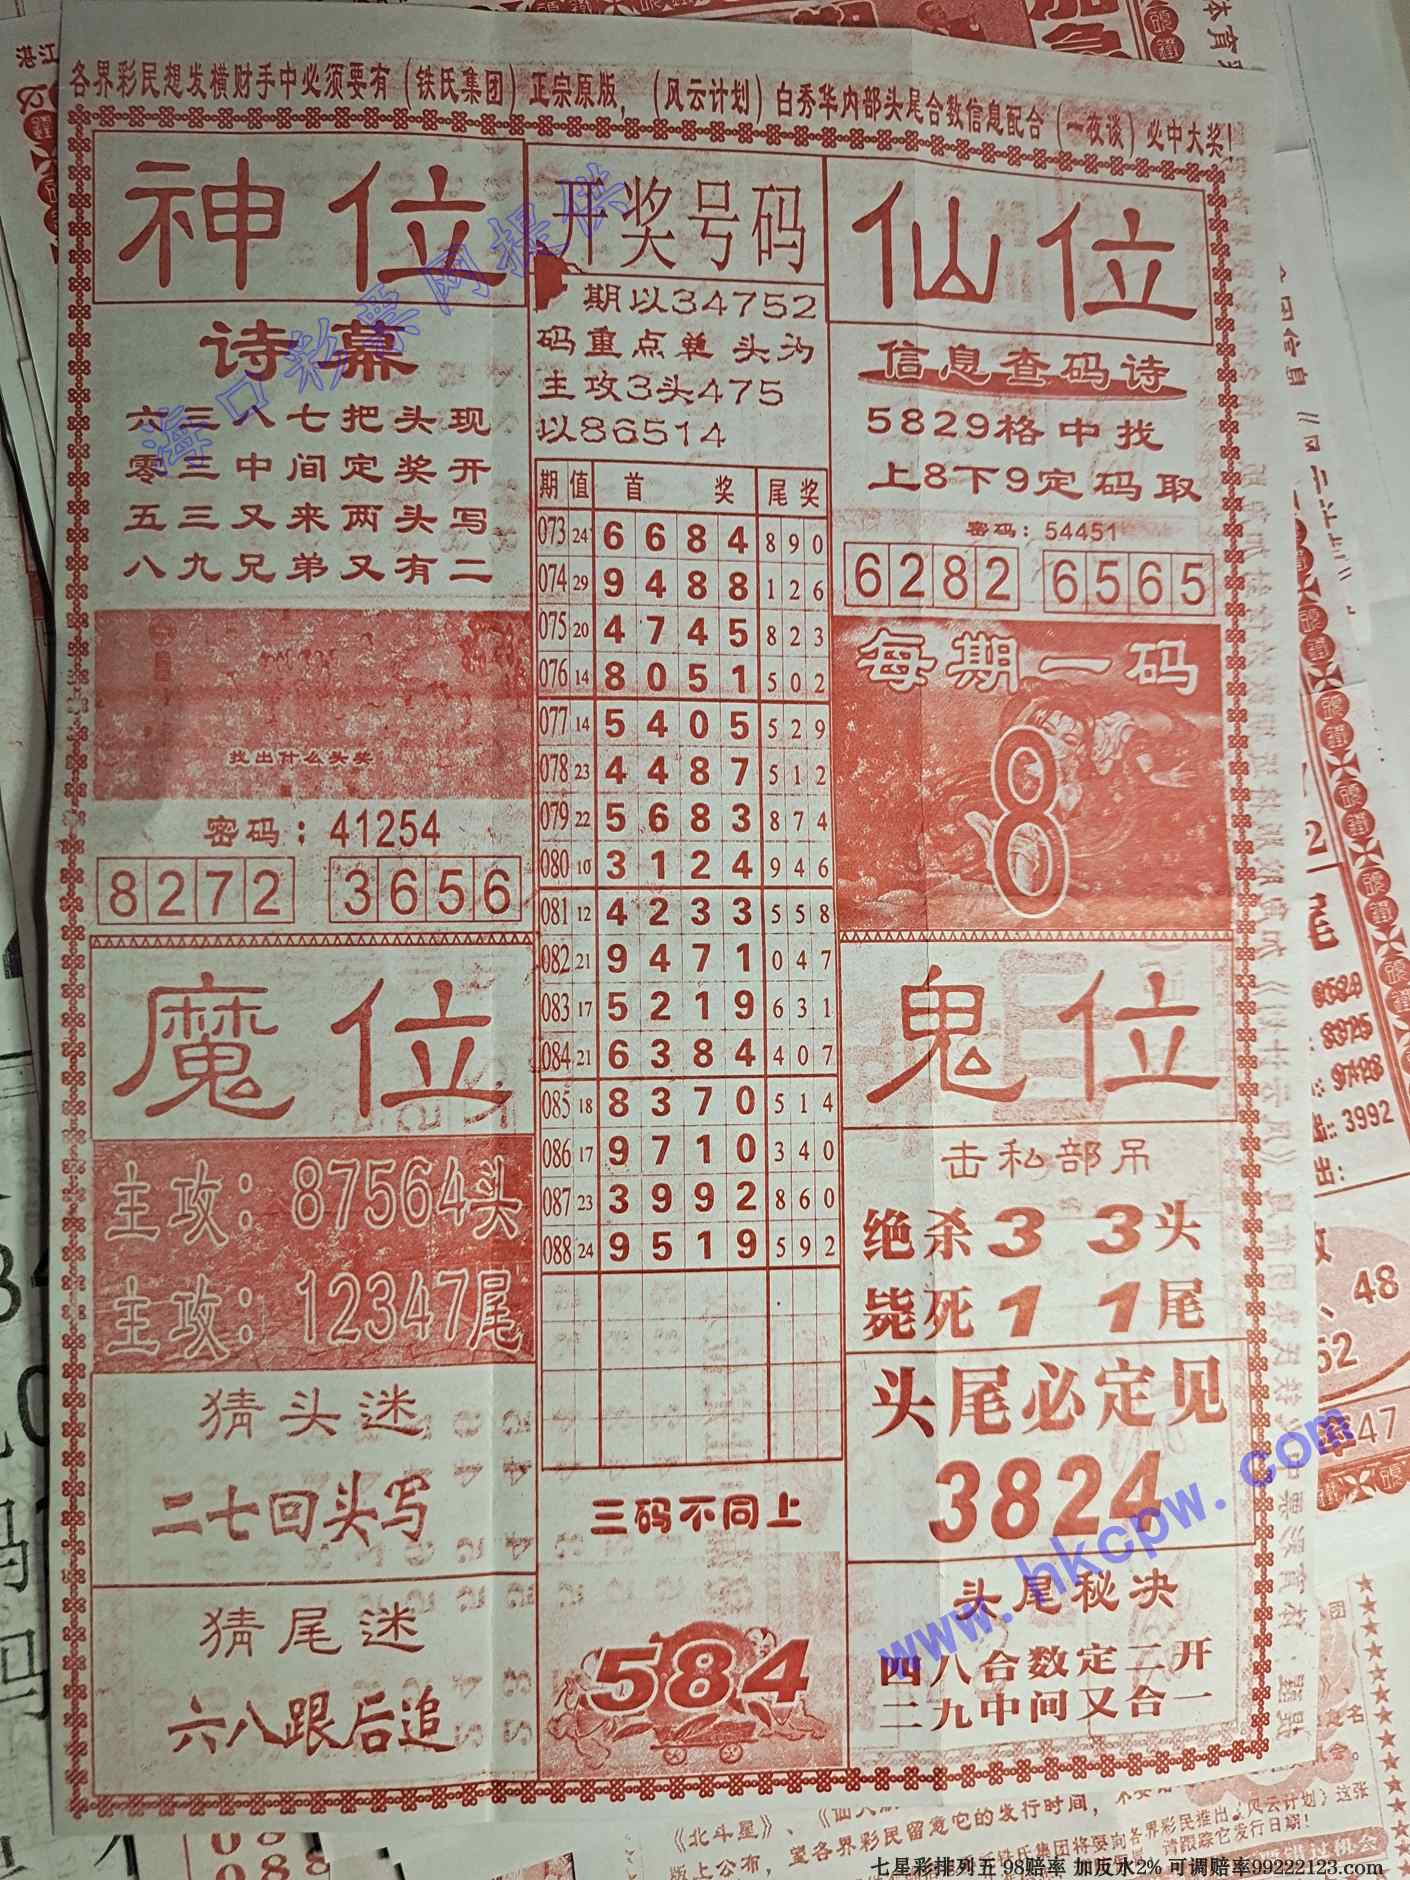 各界彩民想发横财手中必须要有（铁氏集团）正宗原版，（风云计划）白秀华内部头尾合数信息配合（一夜谈）必中大奖！
神位
诗幕
六三八七把头现
零三中间定奖开
五三又来两头写
八九兄弟又有二
找出什么头奖
密码：41254
8272 3656
开奖号码
期以34752
码重点单头为
主攻3头475
以86514
期 值 首奖 尾奖
073 24 6 6 8 4 8 9 0
074 29 9 4 8 8 1 2 6
075 20 4 7 4 5 8 2 3
076 14 8 0 5 1 5 0 2
077 14 5 4 0 5 5 2 9
078 23 4 4 8 7 5 1 2
079 22 5 6 8 3 8 7 4
080 10 3 1 2 4 9 4 6
081 12 4 2 3 3 5 5 8
082 21 9 4 7 1 0 4 7
083 17 5 2 1 9 6 3 1
084 21 6 3 8 4 4 0 7
085 18 8 3 7 0 5 1 4
086 17 9 7 1 0 3 4 0
087 23 3 9 9 2 8 6 0
088 24 9 5 1 9 5 9 2
三码不同上
584
仙位
信息查码诗
5829格中找
上8下9定码取
密码：54451
6282 6565
每期一码
8
魔位
主攻：87564头
主攻：12347尾
猜头迷
二七回头写
猜尾迷
六八跟后追
鬼位
击私部吊
绝杀3 3头
毙死1 1尾
头尾必定见
3824
头尾秘决
四八合数定二开
二九中间又合一
海口彩票网提供
www.hkcpw.com
湛江
3992
48
47
《北斗星》、《仙
望各界彩民留意它的发行时间，
版上公布，
铁氏集团将要向各界彩民推出《风云计划》这张
请跟踪它发行日期！
088
七星彩排列五 98赔率 加反水2% 可调赔率99222123.com